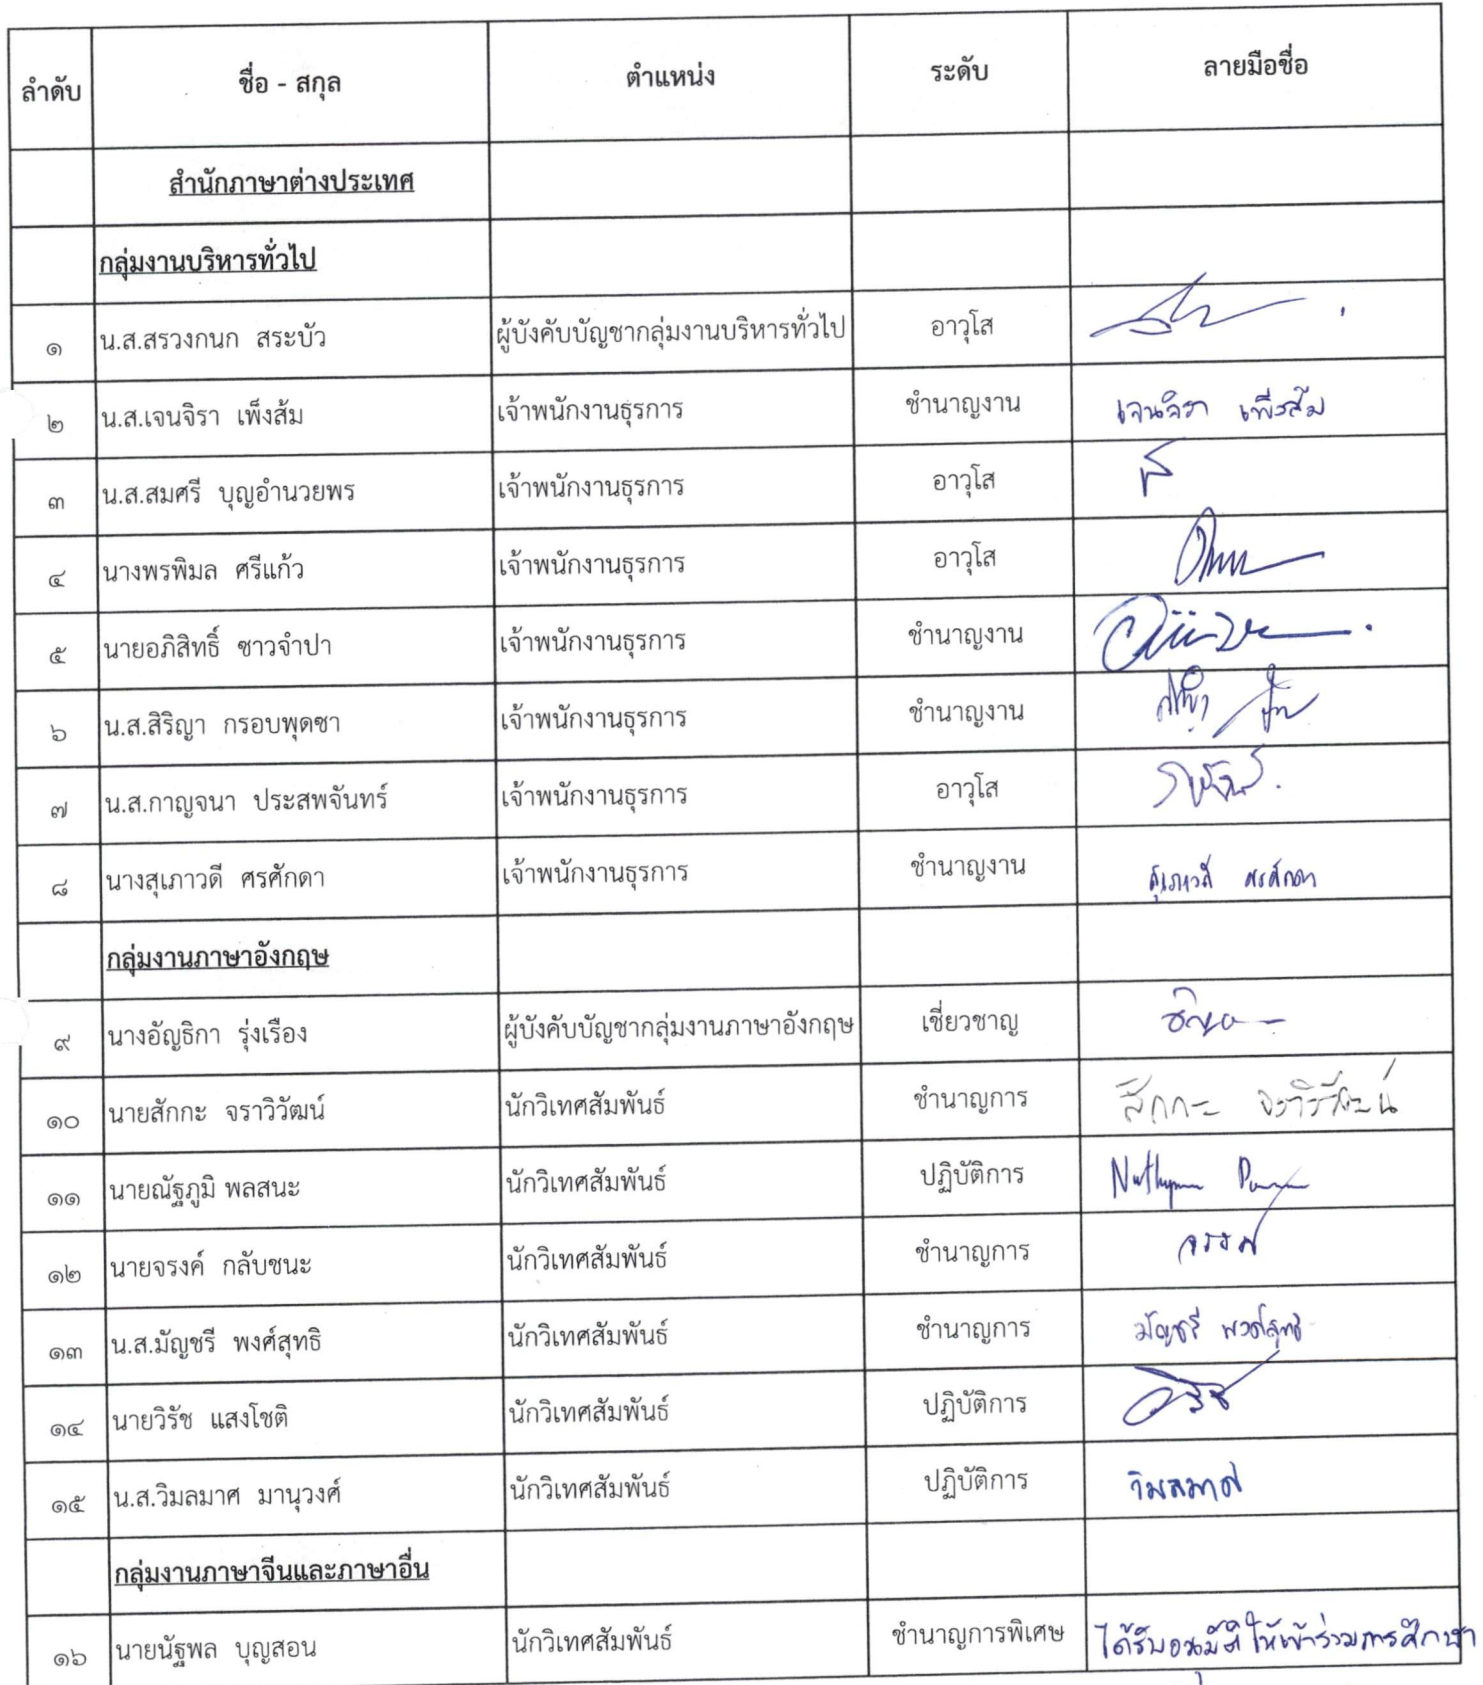 ลำดับ ชื่อ - สกุล ตำแหน่ง ระดับ ลายมือชื่อ
สำนักภาษาต่างประเทศ
กลุ่มงานบริหารทั่วไป
๑ น.ส.สรวงกนก สระบัว ผู้บังคับบัญชากลุ่มงานบริหารทั่วไป อาวุโส
๒ น.ส.เจนจิรา เพ็งส้ม เจ้าพนักงานธุรการ ชำนาญงาน เจนจิรา เพ็งส้ม
๓ น.ส.สมศรี บุญอำนวยพร เจ้าพนักงานธุรการ อาวุโส
๔ นางพรพิมล ศรีแก้ว เจ้าพนักงานธุรการ อาวุโส
๕ นายอภิสิทธิ์ ซาวจำปา เจ้าพนักงานธุรการ ชำนาญงาน
๖ น.ส.สิริญา กรอบพุดซา เจ้าพนักงานธุรการ ชำนาญงาน
๗ น.ส.กาญจนา ประสพจันทร์ เจ้าพนักงานธุรการ อาวุโส
๘ นางสุเภาวดี ศรศักดา เจ้าพนักงานธุรการ ชำนาญงาน สุเภาวดี ศรศักดา
กลุ่มงานภาษาอังกฤษ
๙ นางอัญธิกา รุ่งเรือง ผู้บังคับบัญชากลุ่มงานภาษาอังกฤษ เชี่ยวชาญ
๑๐ นายสักกะ จราวิวัฒน์ นักวิเทศสัมพันธ์ ชำนาญการ สักกะ จราวิวัฒน์
๑๑ นายณัฐภูมิ พลสนะ นักวิเทศสัมพันธ์ ปฏิบัติการ
๑๒ นายจรงค์ กลับชนะ นักวิเทศสัมพันธ์ ชำนาญการ จรงค์
๑๓ น.ส.มัญชรี พงศ์สุทธิ นักวิเทศสัมพันธ์ ชำนาญการ มัญชรี พงศ์สุทธิ
๑๔ นายวิรัช แสงโชติ นักวิเทศสัมพันธ์ ปฏิบัติการ วิรัช
๑๕ น.ส.วิมลมาศ มานุวงศ์ นักวิเทศสัมพันธ์ ปฏิบัติการ วิมลมาศ
กลุ่มงานภาษาจีนและภาษาอื่น
๑๖ นายนัฐพล บุญสอน นักวิเทศสัมพันธ์ ชำนาญการพิเศษ ได้รับอนุมัติให้เข้าร่วมการศึกษา